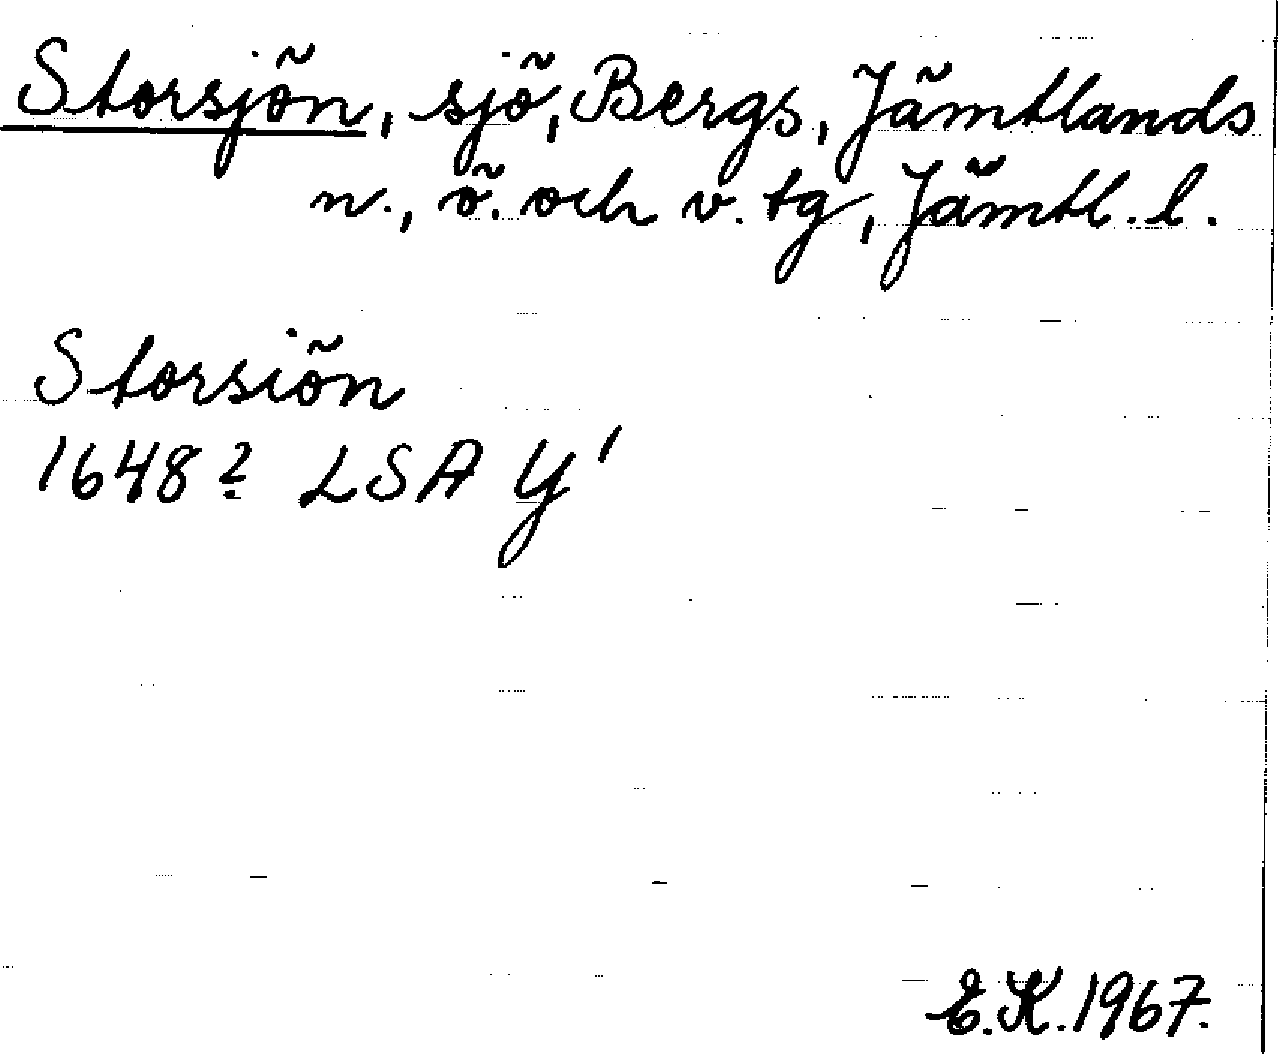 Storsjön, sjö, Bergs, Jämtlands
n., ö. och v. tg, Jämtl. l.
Storsiön
1648? LSA Y'
E.K. 1967.